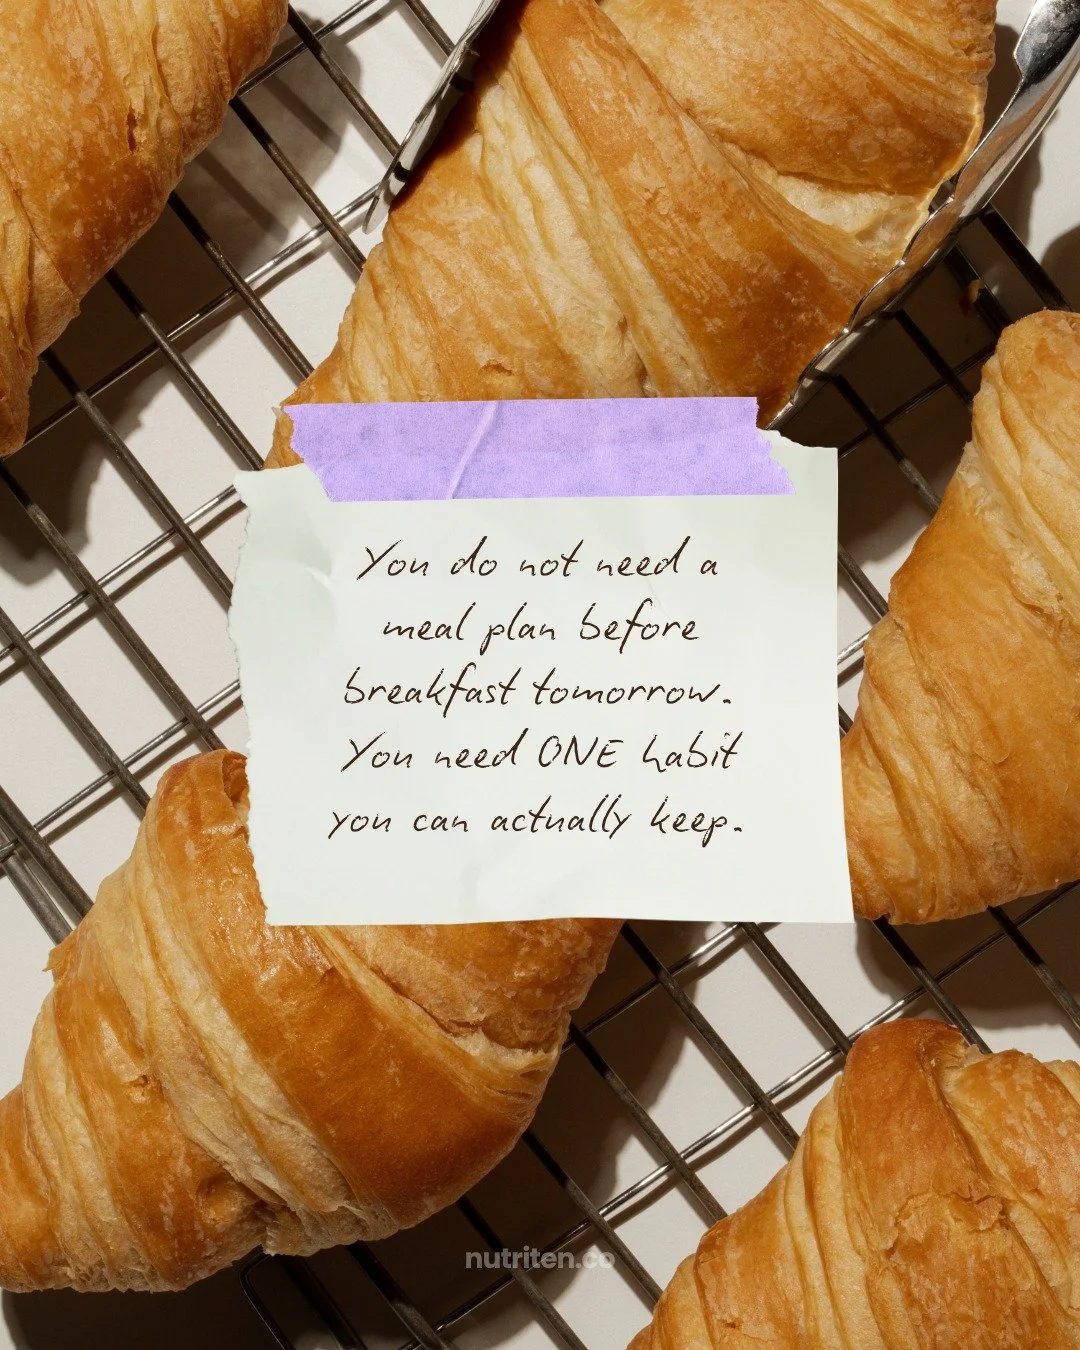 You do not need a
meal plan before
breakfast tomorrow.
You need ONE habit
you can actually keep.
nutriten.co